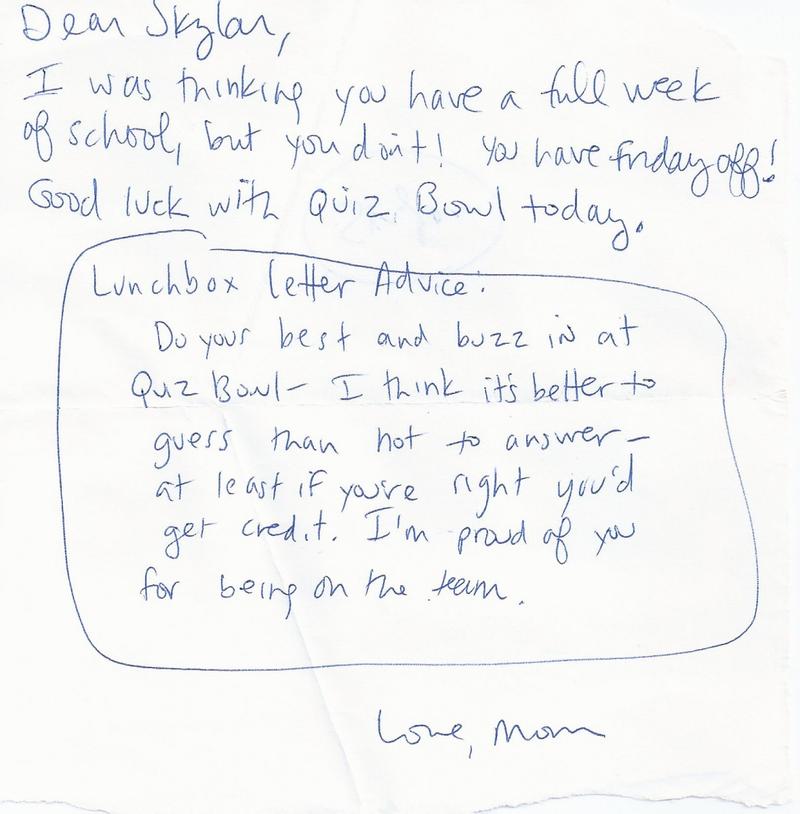 Dear Skylar,
I was thinking you have a full week
of school, but you don't! You have friday off!
Good luck with Quiz Bowl today.
Lunchbox letter Advice:
Do your best and buzz in at
Quz Bowl- I think it's better to
guess than not to answer-
at least if you're right you'd
get credit. I'm proud of you
for being on the team.
Love, Mom